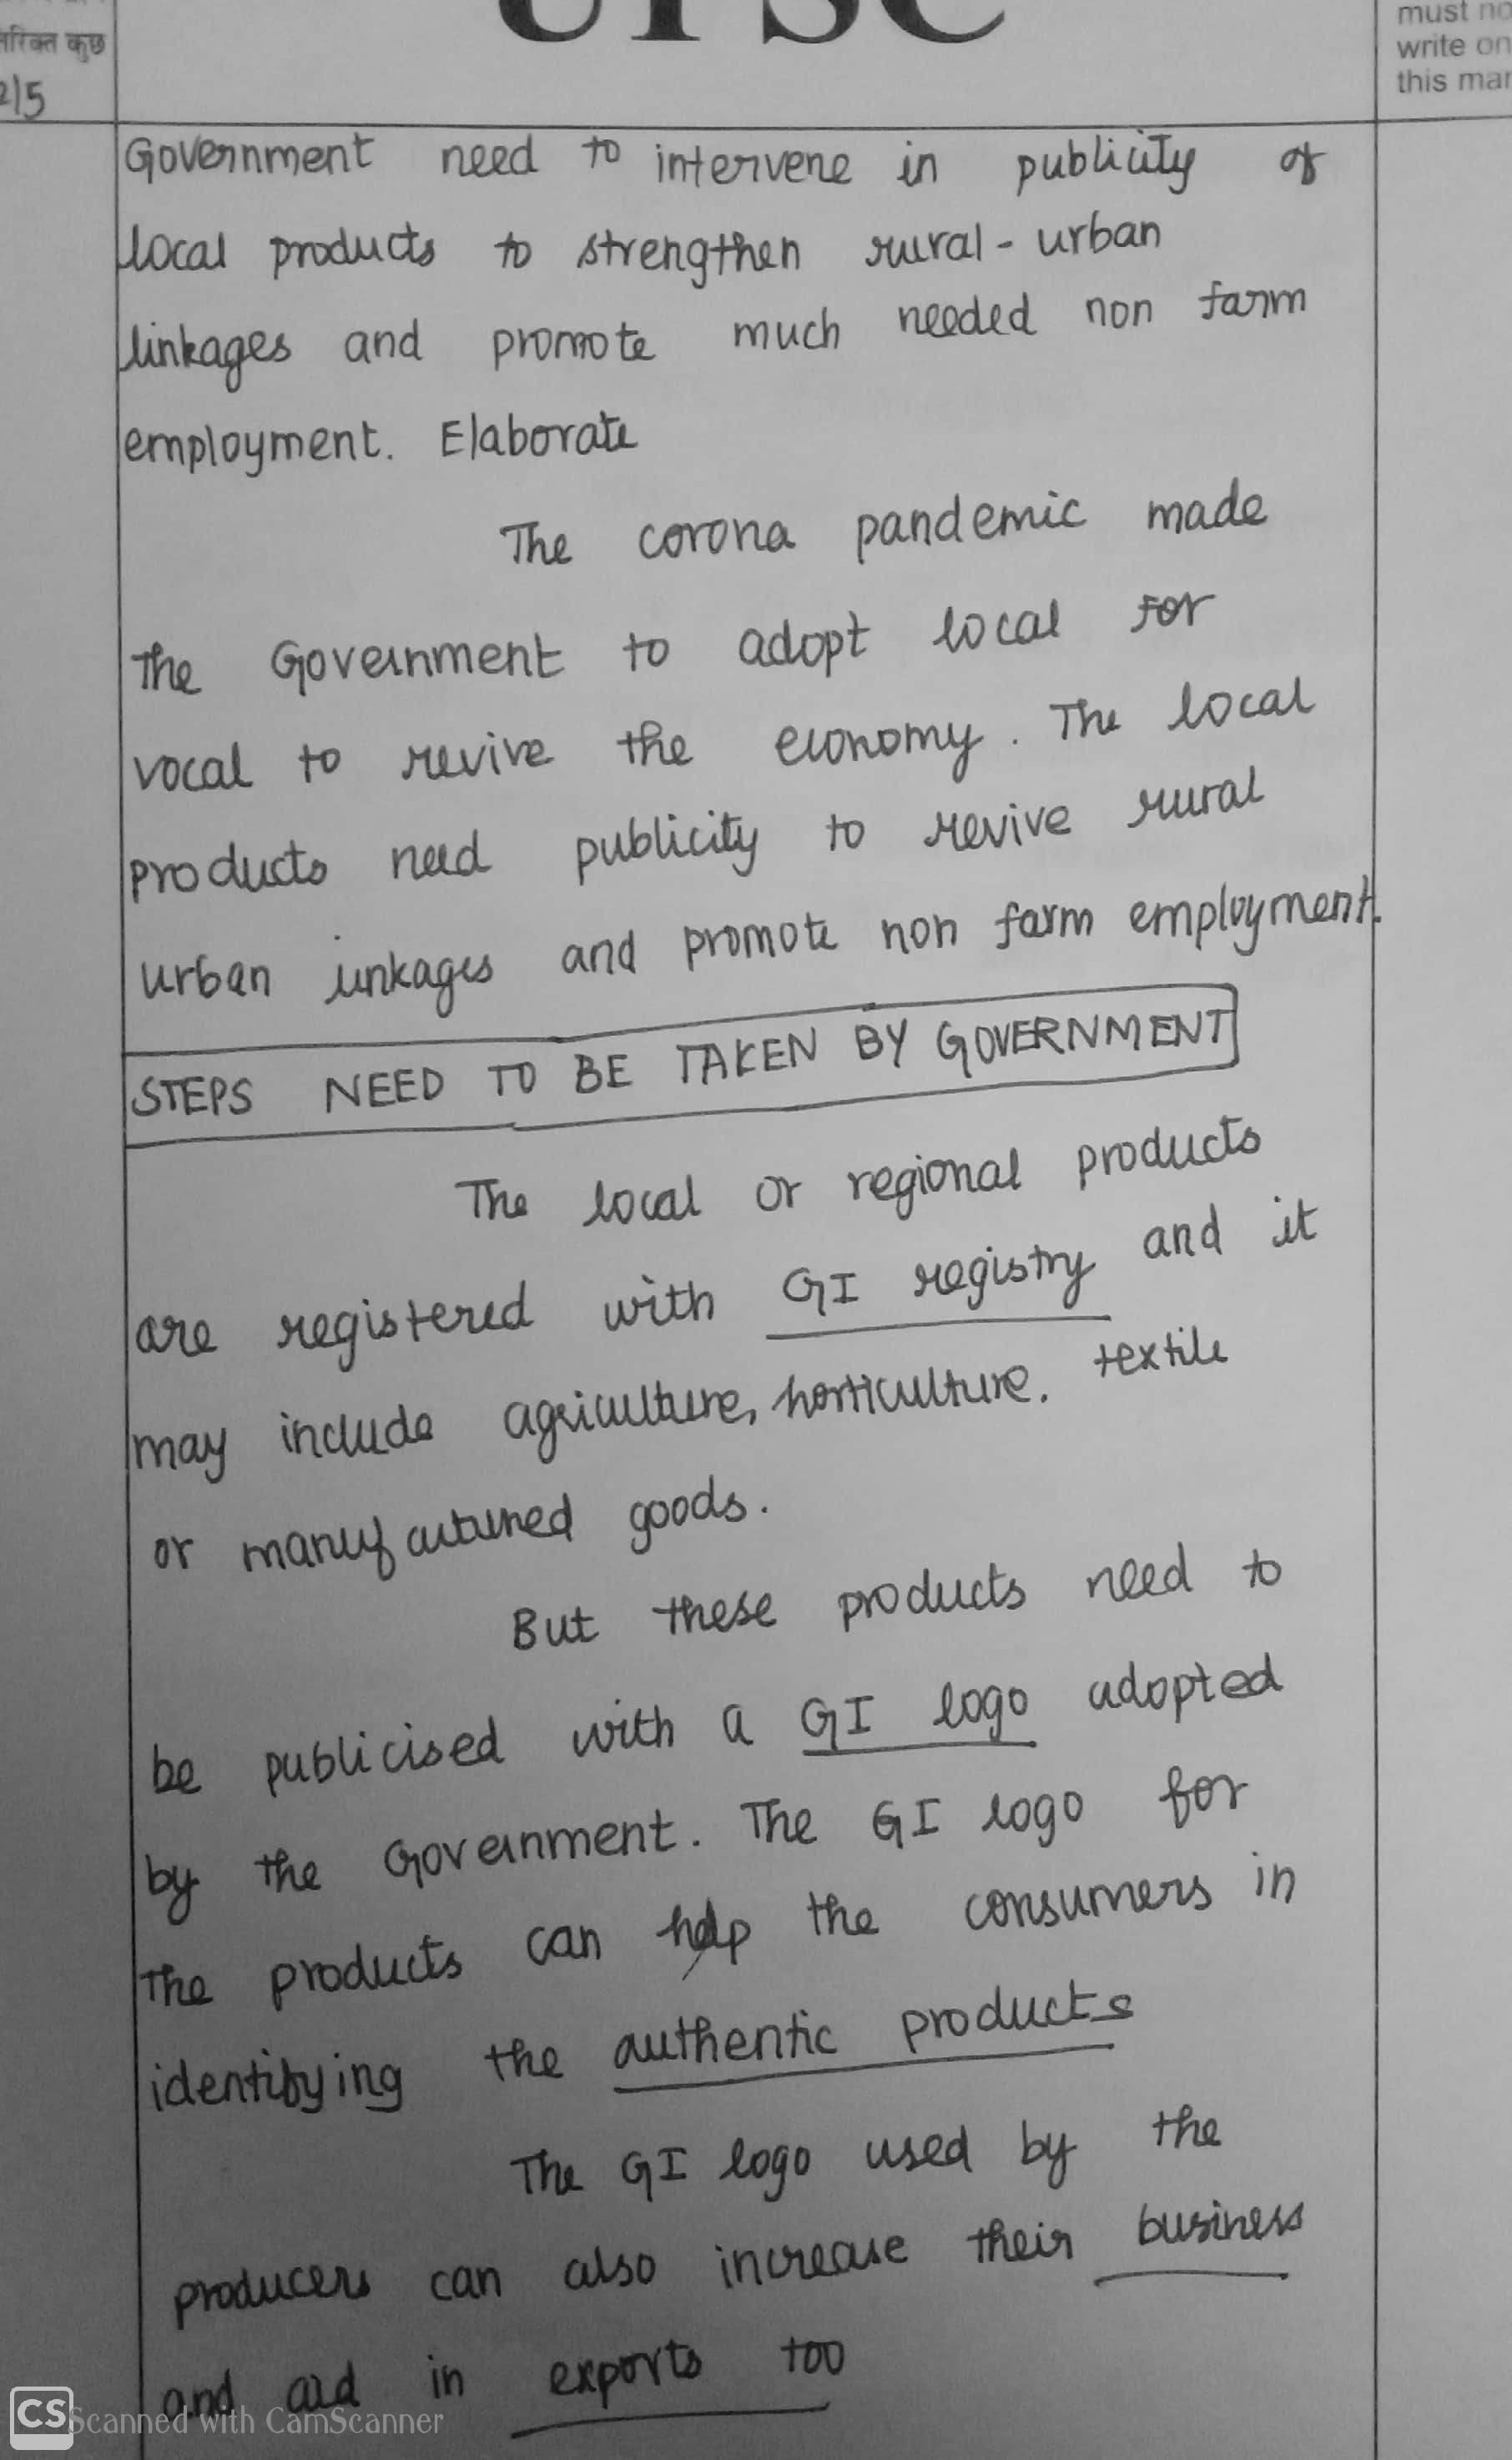 UPSC
must no
write on
this mar
तिरिक्त कुछ
2/5
Government need to intervene in publicity of
local products to strengthen rural - urban
linkages and promote much needed non farm
employment. Elaborate
The corona pandemic made
the Government to adopt local for
vocal to revive the economy. The local
products need publicity to revive rural
urban linkages and promote non farm employment.
STEPS NEED TO BE TAKEN BY GOVERNMENT
The local or regional products
are registered with GI registry and it
may include agriculture, horticulture, textile
or manufactured goods.
But these products need to
be publicised with a GI logo adopted
by the Government. The GI logo for
the products can help the consumers in
identifying the authentic products
The GI logo used by the
producers can also increase their business
and aid in exports too
CS Scanned with CamScanner